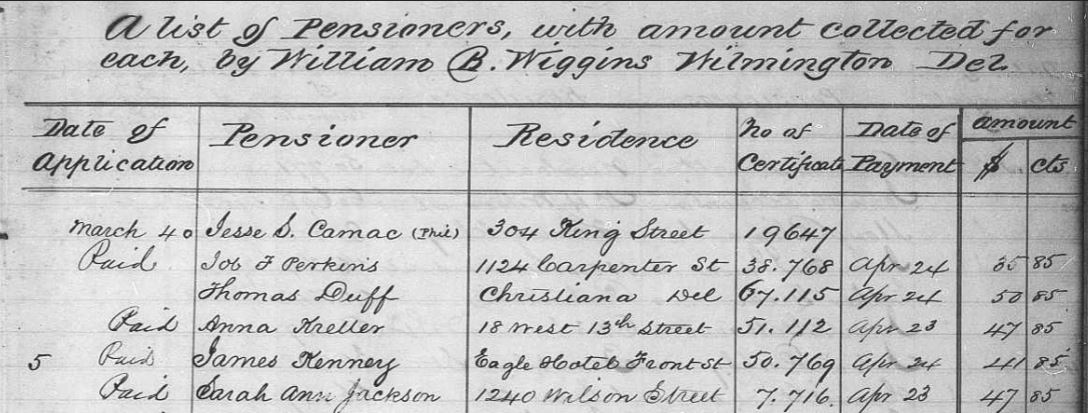 A list of Pensioners, with amount collected for
each, by William B. Wiggins Wilmington Del
Date of Application Pensioner Residence No of Certificate Date of Payment amount $ cts
March 40 Jesse S. Camac (Phil) 304 King Street 19647
Paid Job F Perkins 1124 Carpenter St 38.768 Apr 24 35 85
Thomas Duff Christiana Del 67.115 Apr 24 50 85
Paid Anna Kreller 18 West 13th Street 51.112 Apr 23 47 85
5 Paid James Kenney Eagle Hotel Front St 50.769 Apr 24 41 85
Paid Sarah Ann Jackson 1240 Wilson Street 7.716. Apr 23 47 85